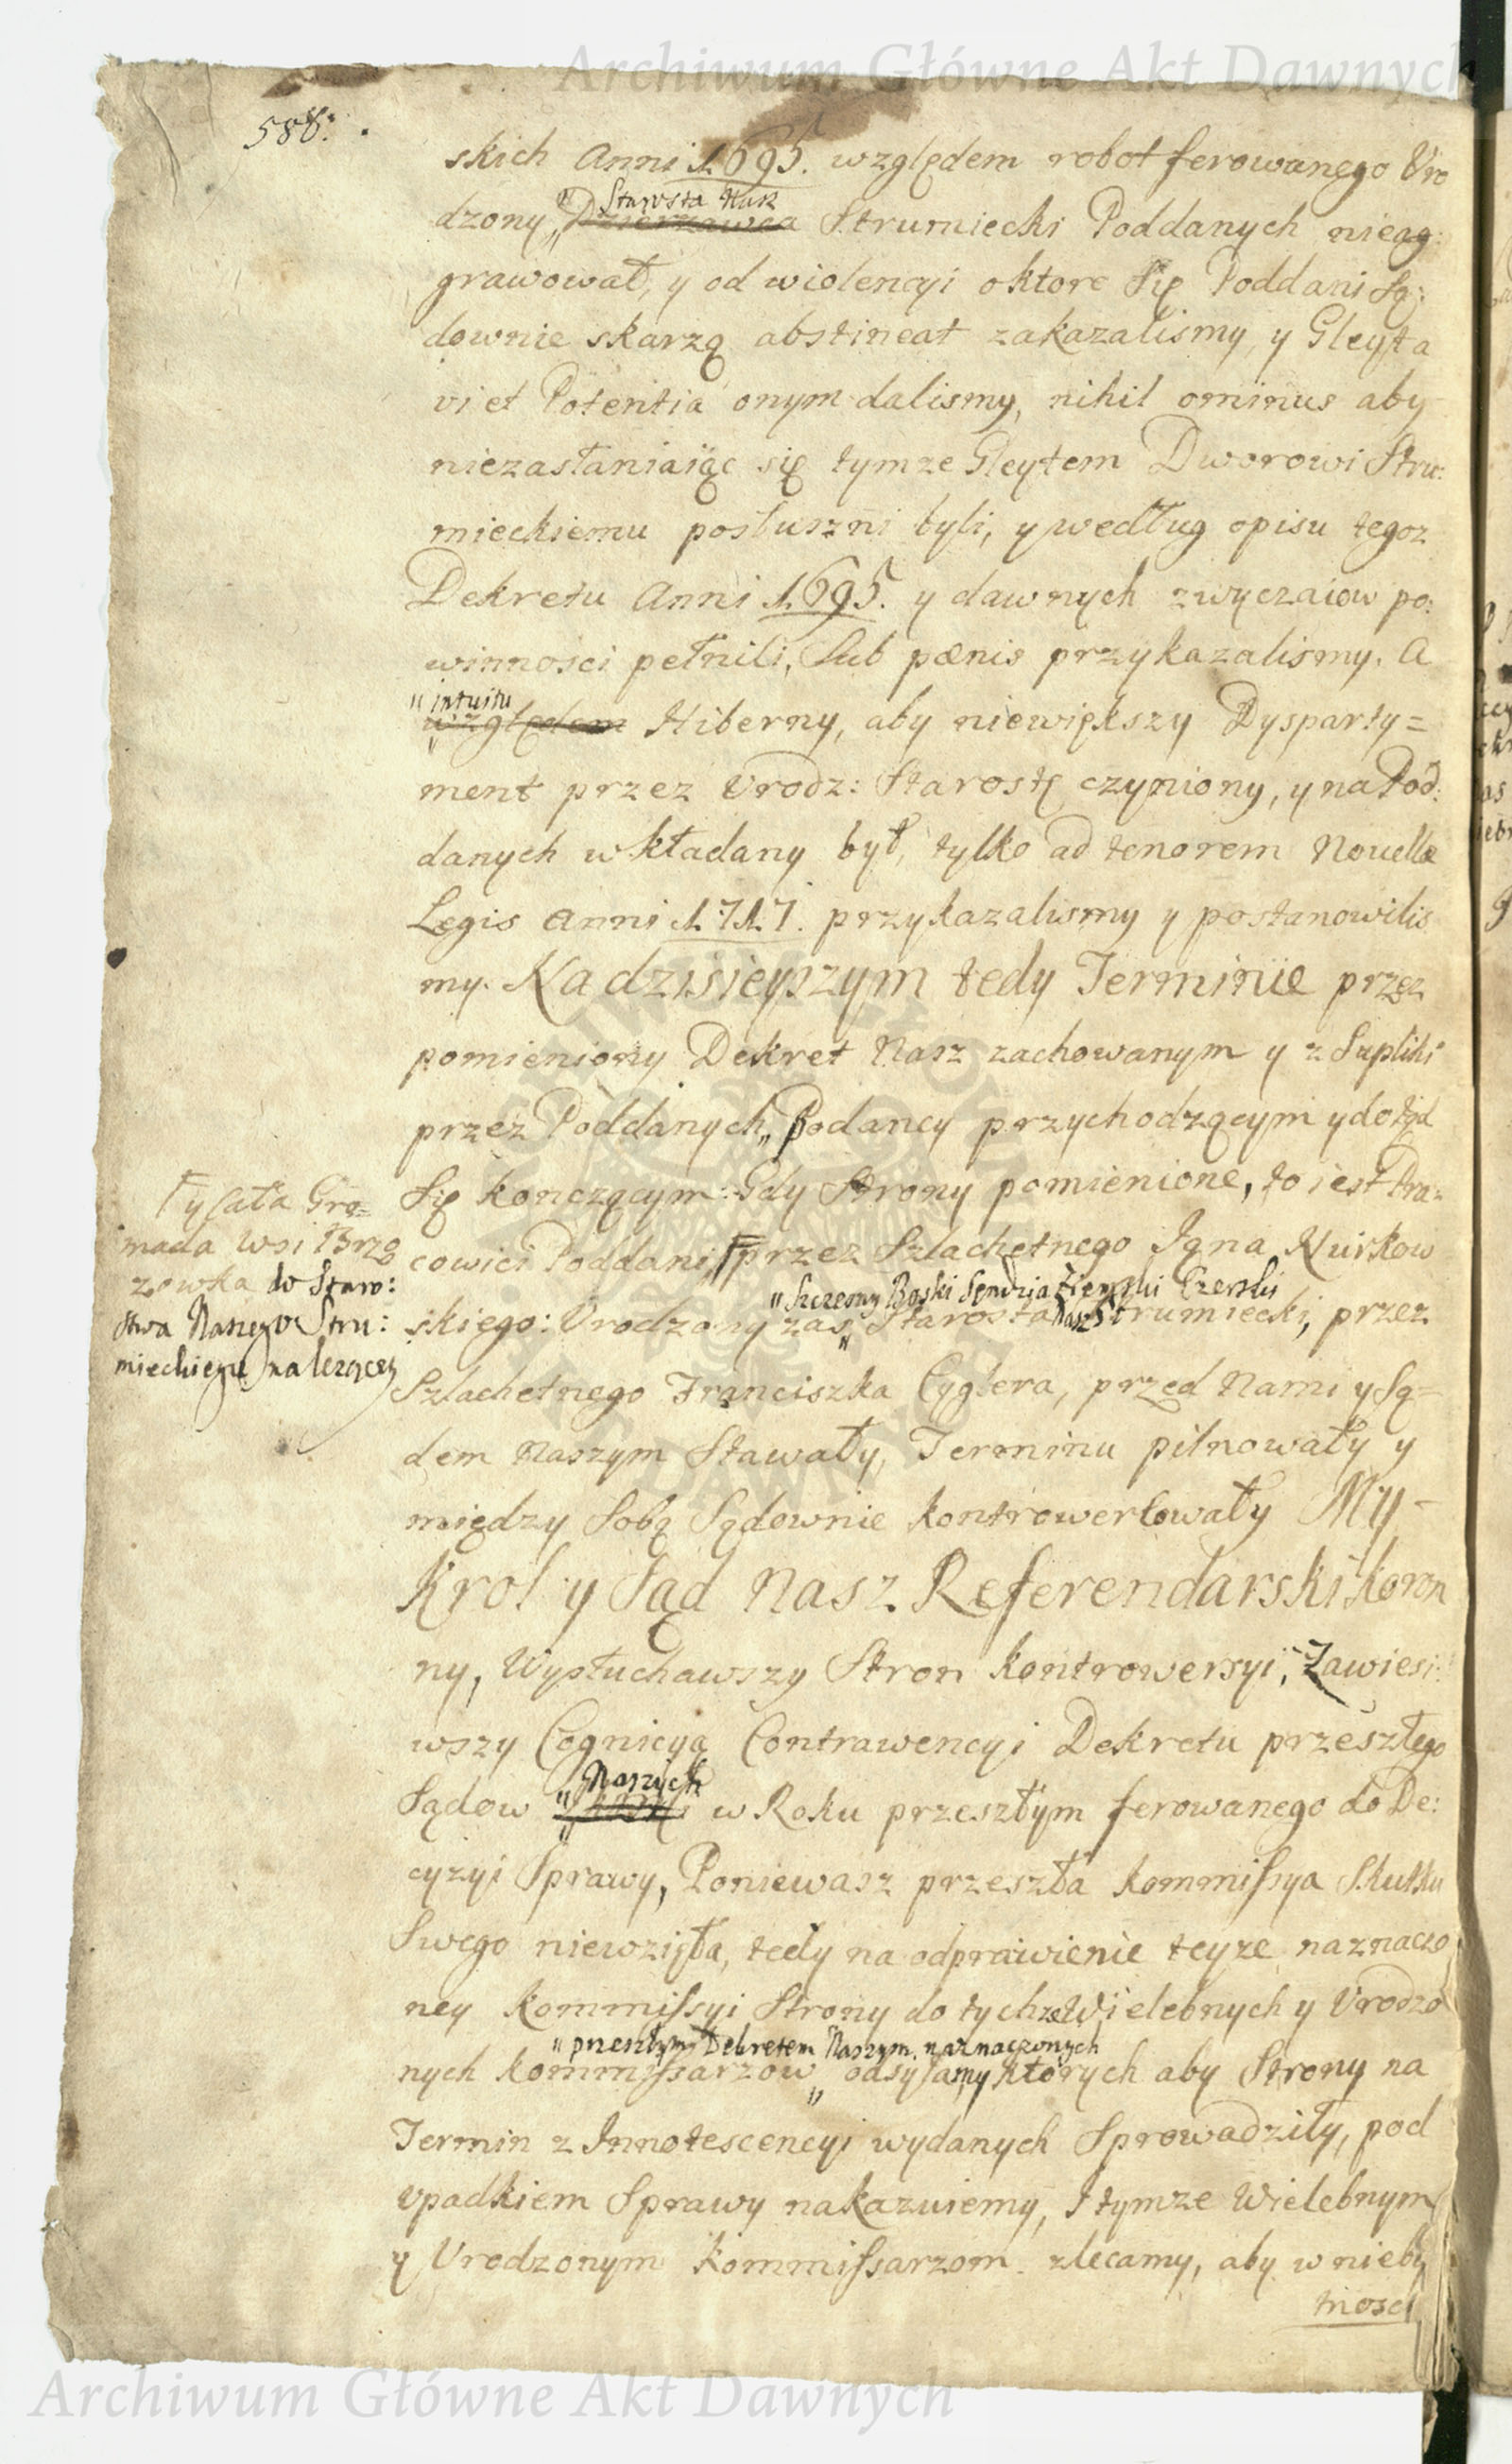 Archiwum Główne Akt Dawnych
588.
skich Anni 1695. względem robot ferowanego Uro
" Starosta Nasz
dzony,, Dzierzawca Strumiecki Poddanych nieag:
grawował, y od wiolencyi oktore Się Poddani Są:
downie skarzą abstineat zakazalismy, y Gleyta
vi et Potentia onym dalismy, nihil ominus aby
niezasłaniaiąc się tymze Gleytem Dworowi Stru:
mieckiemu posłuszni byli, y według opisu tegoz
Dekretu Anni 1695. y dawnych zwyczaiow po:
winnosci pełnili, Sub pœnis przykazalismy. A
" intuitu
względem Hiberny, aby niewiększy Dysparty=
ment przez Urodz: Starostę czyniony, y na Pod:
danych wkładany był, tylko ad tenorem Novellæ
Legis Anni 1717. przykazalismy y postanowilis
my. Na dzisieyszym tedy Terminie przez
pomieniony Dekret Nasz zachowanym y z Supliki
przez Poddanych,, Podaney przychodzącym y dotąd
Się konczącym: Gdy Strony pomienione, to iest Pra=
cowici Poddani, przez Szlachetnego Igna Kurkow
y cała Gro=
mada wsi Brzo
zowka do Staro:
stwa Naszego Stru:
mieckiego nalezącey
" Szczesny Boski Sendzia Ziemski Czerski
skiego: Urodzony zas,, Starosta Nasz Strumiecki, przez
Szlachetnego Franciszka Cyglera, przed Nami y Są=
dem Naszym Stawały, Terminu pilnowały y
między Sobą Sądownie kontrowertowały My
Krol y Sąd Nasz Referendarski koron
ny, Wysłuchawszy Stron kontrowersyi, Zawiesi:
wszy Cognicyą Contrawencyi Dekretu przeszłego
" Naszych
Sądow w Roku przeszłym ferowanego do De:
cyzyi Sprawy, Poniewasz przeszła kommissya Skutku
Swego niewzięła, tedy na odprawienie teyze naznaczo
ney kommissyi Strony do tychze Wielebnych y Urodzo
" przeszłym Dekretem Naszym naznaczonych
nych kommissarzow,, odsyłamy ktorych aby Strony na
Termin z Innotescencyi wydanych Sprowadziły, pod
upadkiem Sprawy nakazuiemy, I tymze Wielebnym
y Urodzonym kommissarzom zlecamy, aby w nieby
tnosci
Archiwum Główne Akt Dawnych